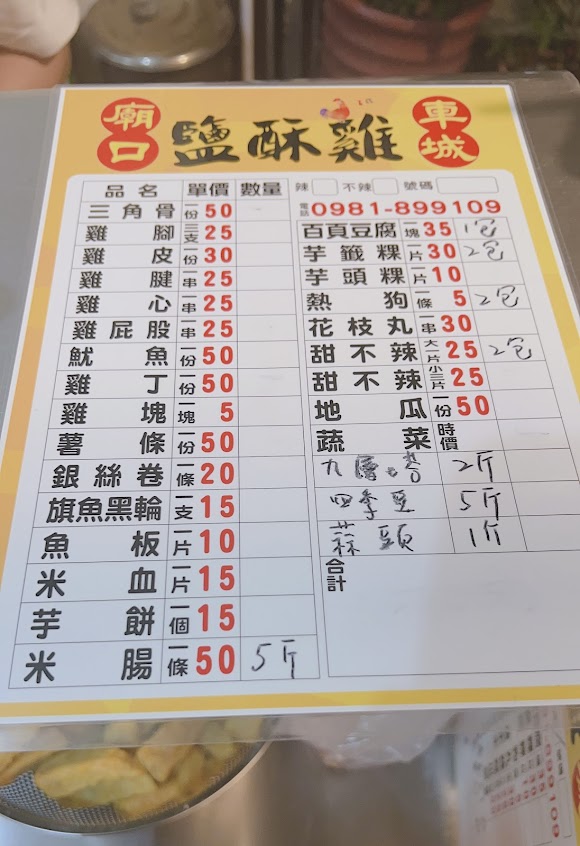 廟口 鹽酥雞 車城
品名 單價 數量
三角骨 一份 50
雞腳 三支 25
雞皮 一份 30
雞腱 一串 25
雞心 一串 25
雞屁股 一串 25
魷魚 一份 50
雞丁 一份 50
雞塊 一塊 5
薯條 一份 50
銀絲卷 一條 20
旗魚黑輪 一支 15
魚板 一片 10
米血 一片 15
芋餅 一個 15
米腸 一條 50 5斤
辣 不辣 號碼
電話 0981-899109
百頁豆腐 一塊 35 1包
芋籤粿 一片 30 2包
芋頭粿 一片 10
熱狗 一條 5 2包
花枝丸 一串 30
甜不辣 大一片 25 2包
甜不辣 小三片 25
地瓜 一份 50
蔬菜 時價
九層 2斤
四季豆 5斤
蒜頭 1斤
合計